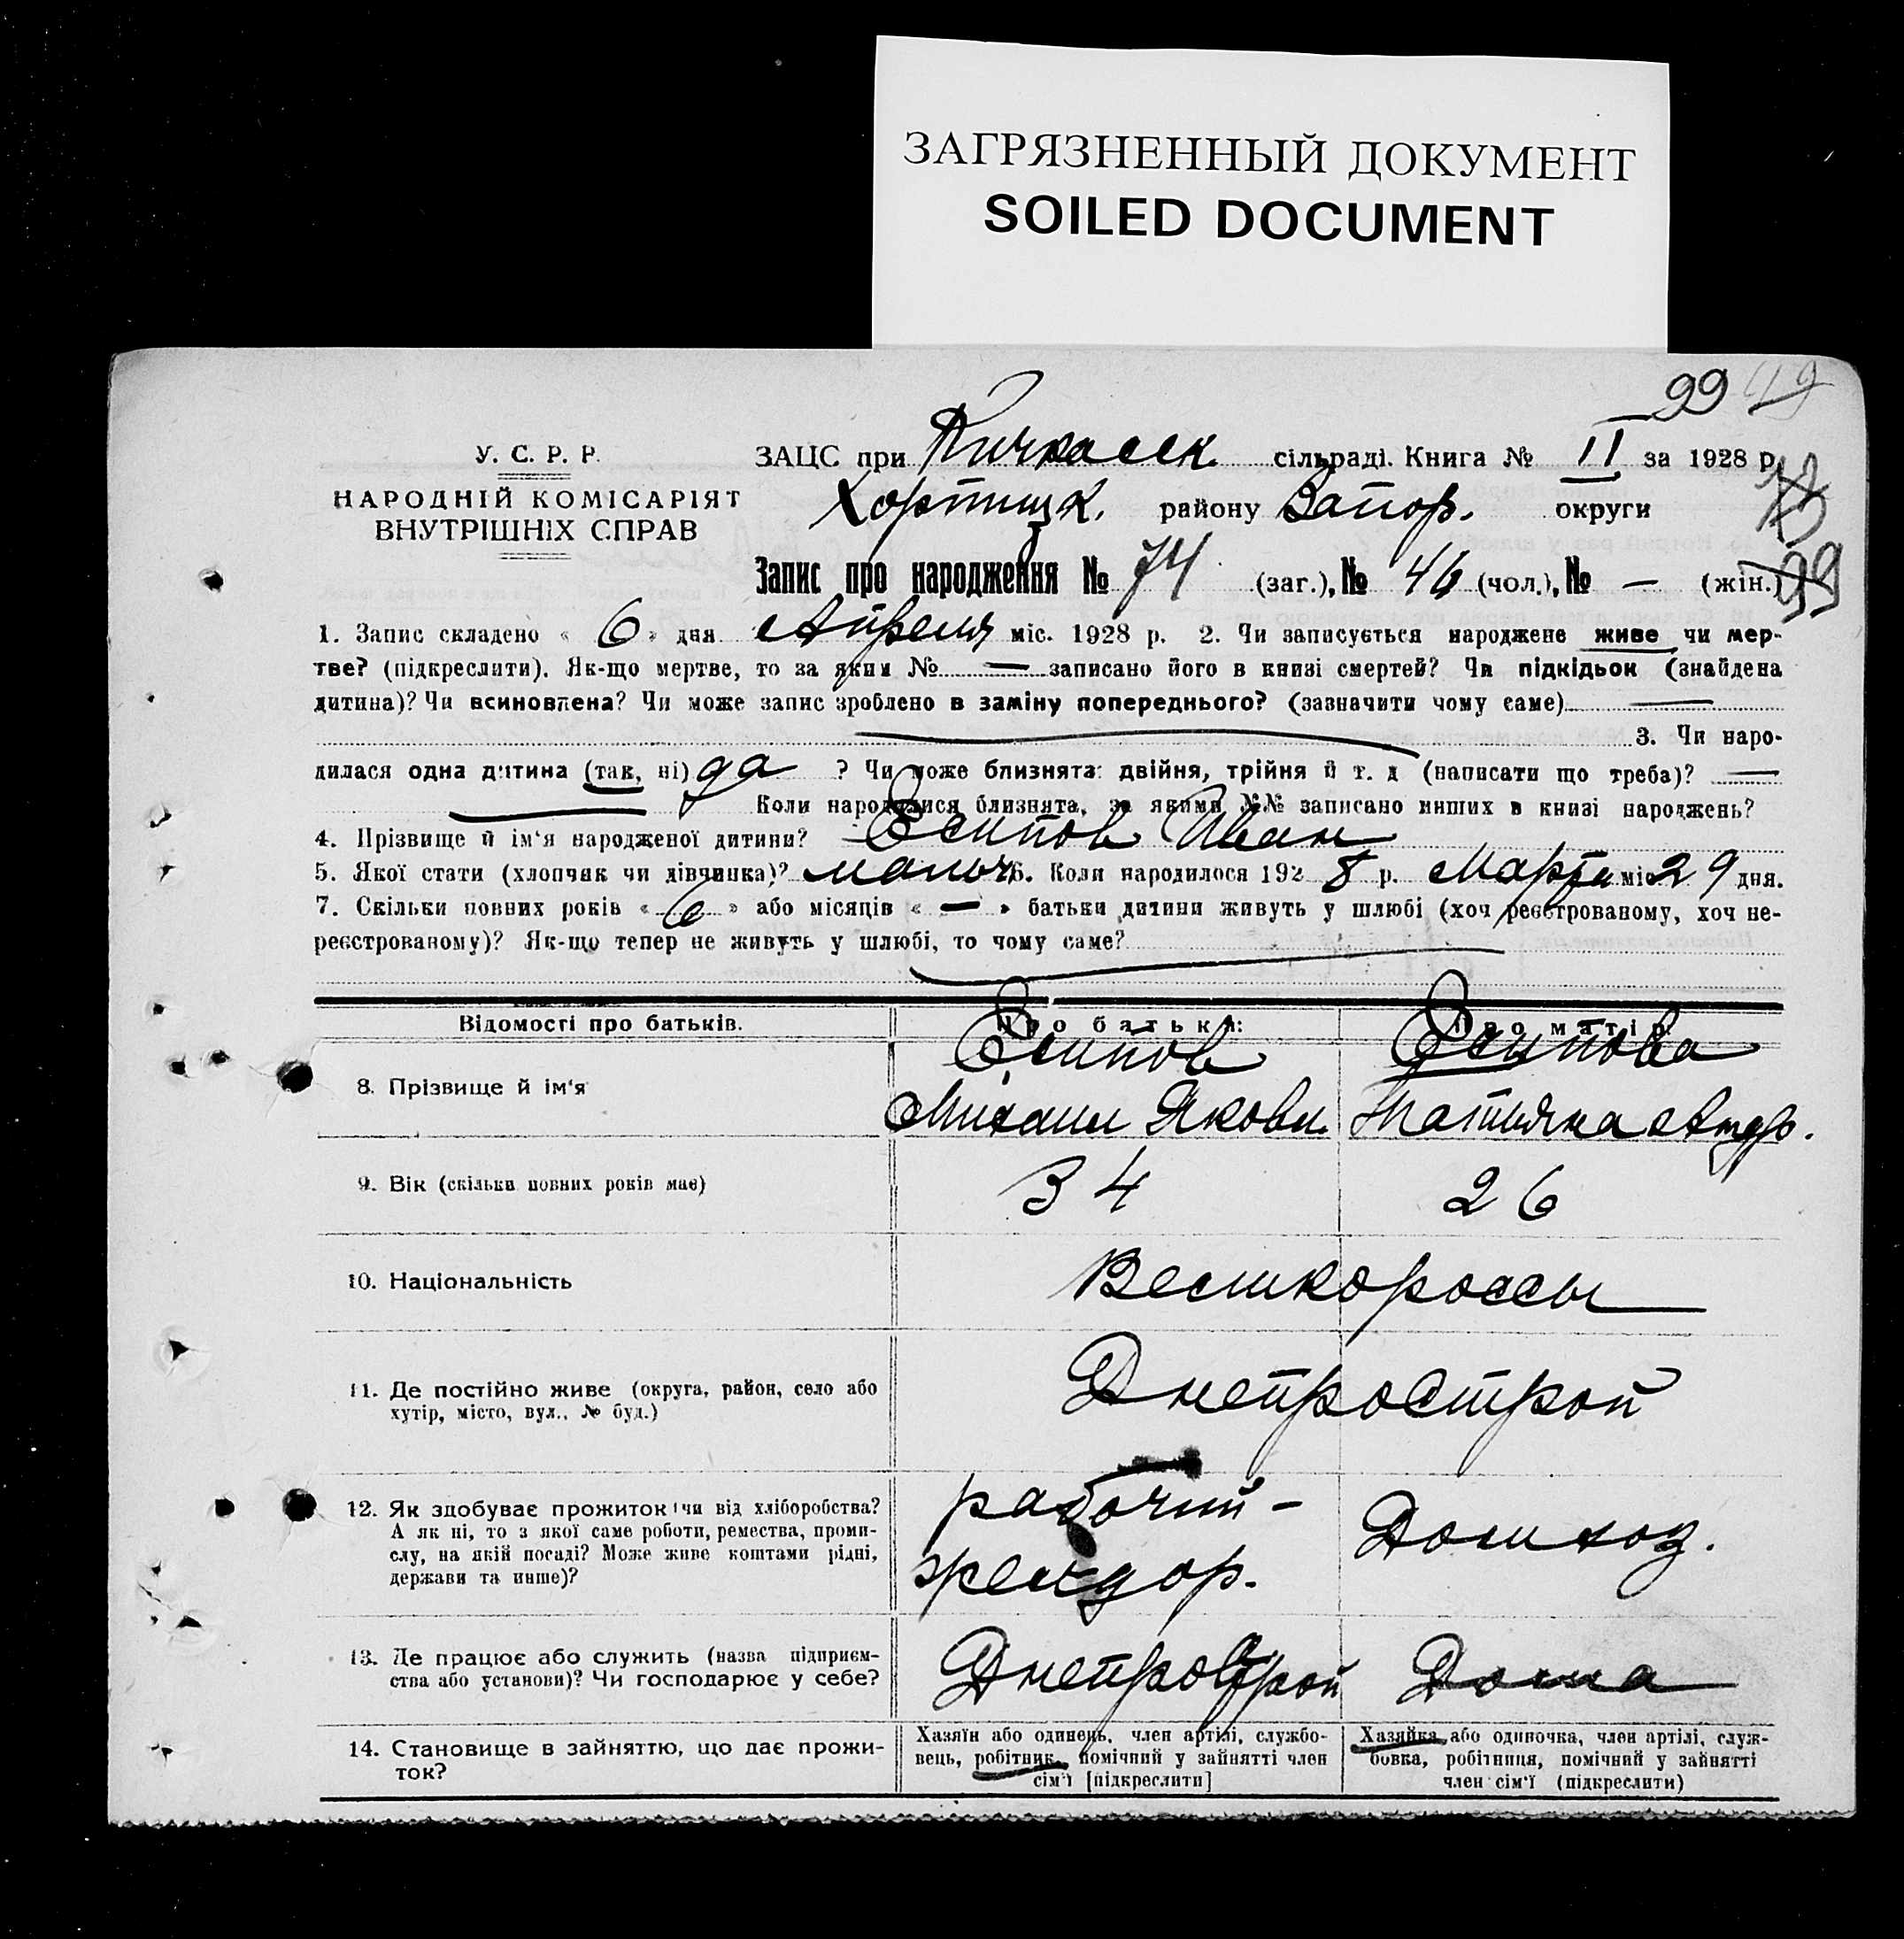 ЗАГРЯЗНЕННЫЙ ДОКУМЕНТ
SOILED DOCUMENT
99 49
У. С. Р. Р.
НАРОДНІЙ КОМІСАРІЯТ
ВНУТРІШНІХ СПРАВ
ЗАЦС при Кичкасск. сільраді. Книга № II за 1928 р.
Хортицк. району Запор. округи
99
Запис про народження № 74 (заг.), № 46 (чол.), № — (жін.)
1. Запис складено « 6 » дня Апреля міс. 1928 р. 2. Чи записується народжене живе чи мер-
тве? (підкреслити). Як-що мертве, то за яким № — записано його в книзі смертей? Чи підкідьок (знайдена
дитина)? Чи всиновлена? Чи може запис зроблено в заміну попереднього? (зазначити чому саме) —
— 3. Чи наро-
дилася одна дитина (так, ні) да ? Чи може близнята: двійня, трійня й т. д (написати що треба)? —
— Коли народилися близнята, за якими №№ записано инших в книзі народжень?
4. Прізвище й ім'я народженої дитини? Есипов Иван
5. Якої стати (хлопчик чи дівчинка)? мальч 6. Коли народилося 192 8 р. Марта міс 29 дня.
7. Скільки повних років « 6 » або місяців « — » батьки дитини живуть у шлюбі (хоч реєстрованому, хоч не-
реєстрованому)? Як-що тепер не живуть у шлюбі, то чому саме? —
Відомості про батьків. Про батька: Про матір:
8. Прізвище й ім'я Есипов Есипова
Михаил Яковл. Татьяна
9. Вік (скільки повних років має) 34 26
10. Національність Великороссы
11. Де постійно живе (округа, район, село або
хутір, місто, вул., № буд.) Днепрострой
12. Як здобуває прожиток: чи від хліборобства?
А як ні, то з якої саме роботи, ремества, проми-
слу, на якій посаді? Може живе коштами рідні,
держави та инше)?
рабочий -
желдор.
Домхоз.
13. Де працює або служить (назва підприєм-
ства або установи)? Чи господарює у себе?
Днепрострой Дома
14. Становище в зайняттю, що дає прожи-
ток?
Хазяїн або одинець, член артілі, службо-
вець, робітник, помічний у зайнятті член
сім'ї [підкреслити]
Хазяйка або одиночка, член артілі, служ-
бовка, робітниця, помічний у зайнятті
член сім'ї (підкреслити)